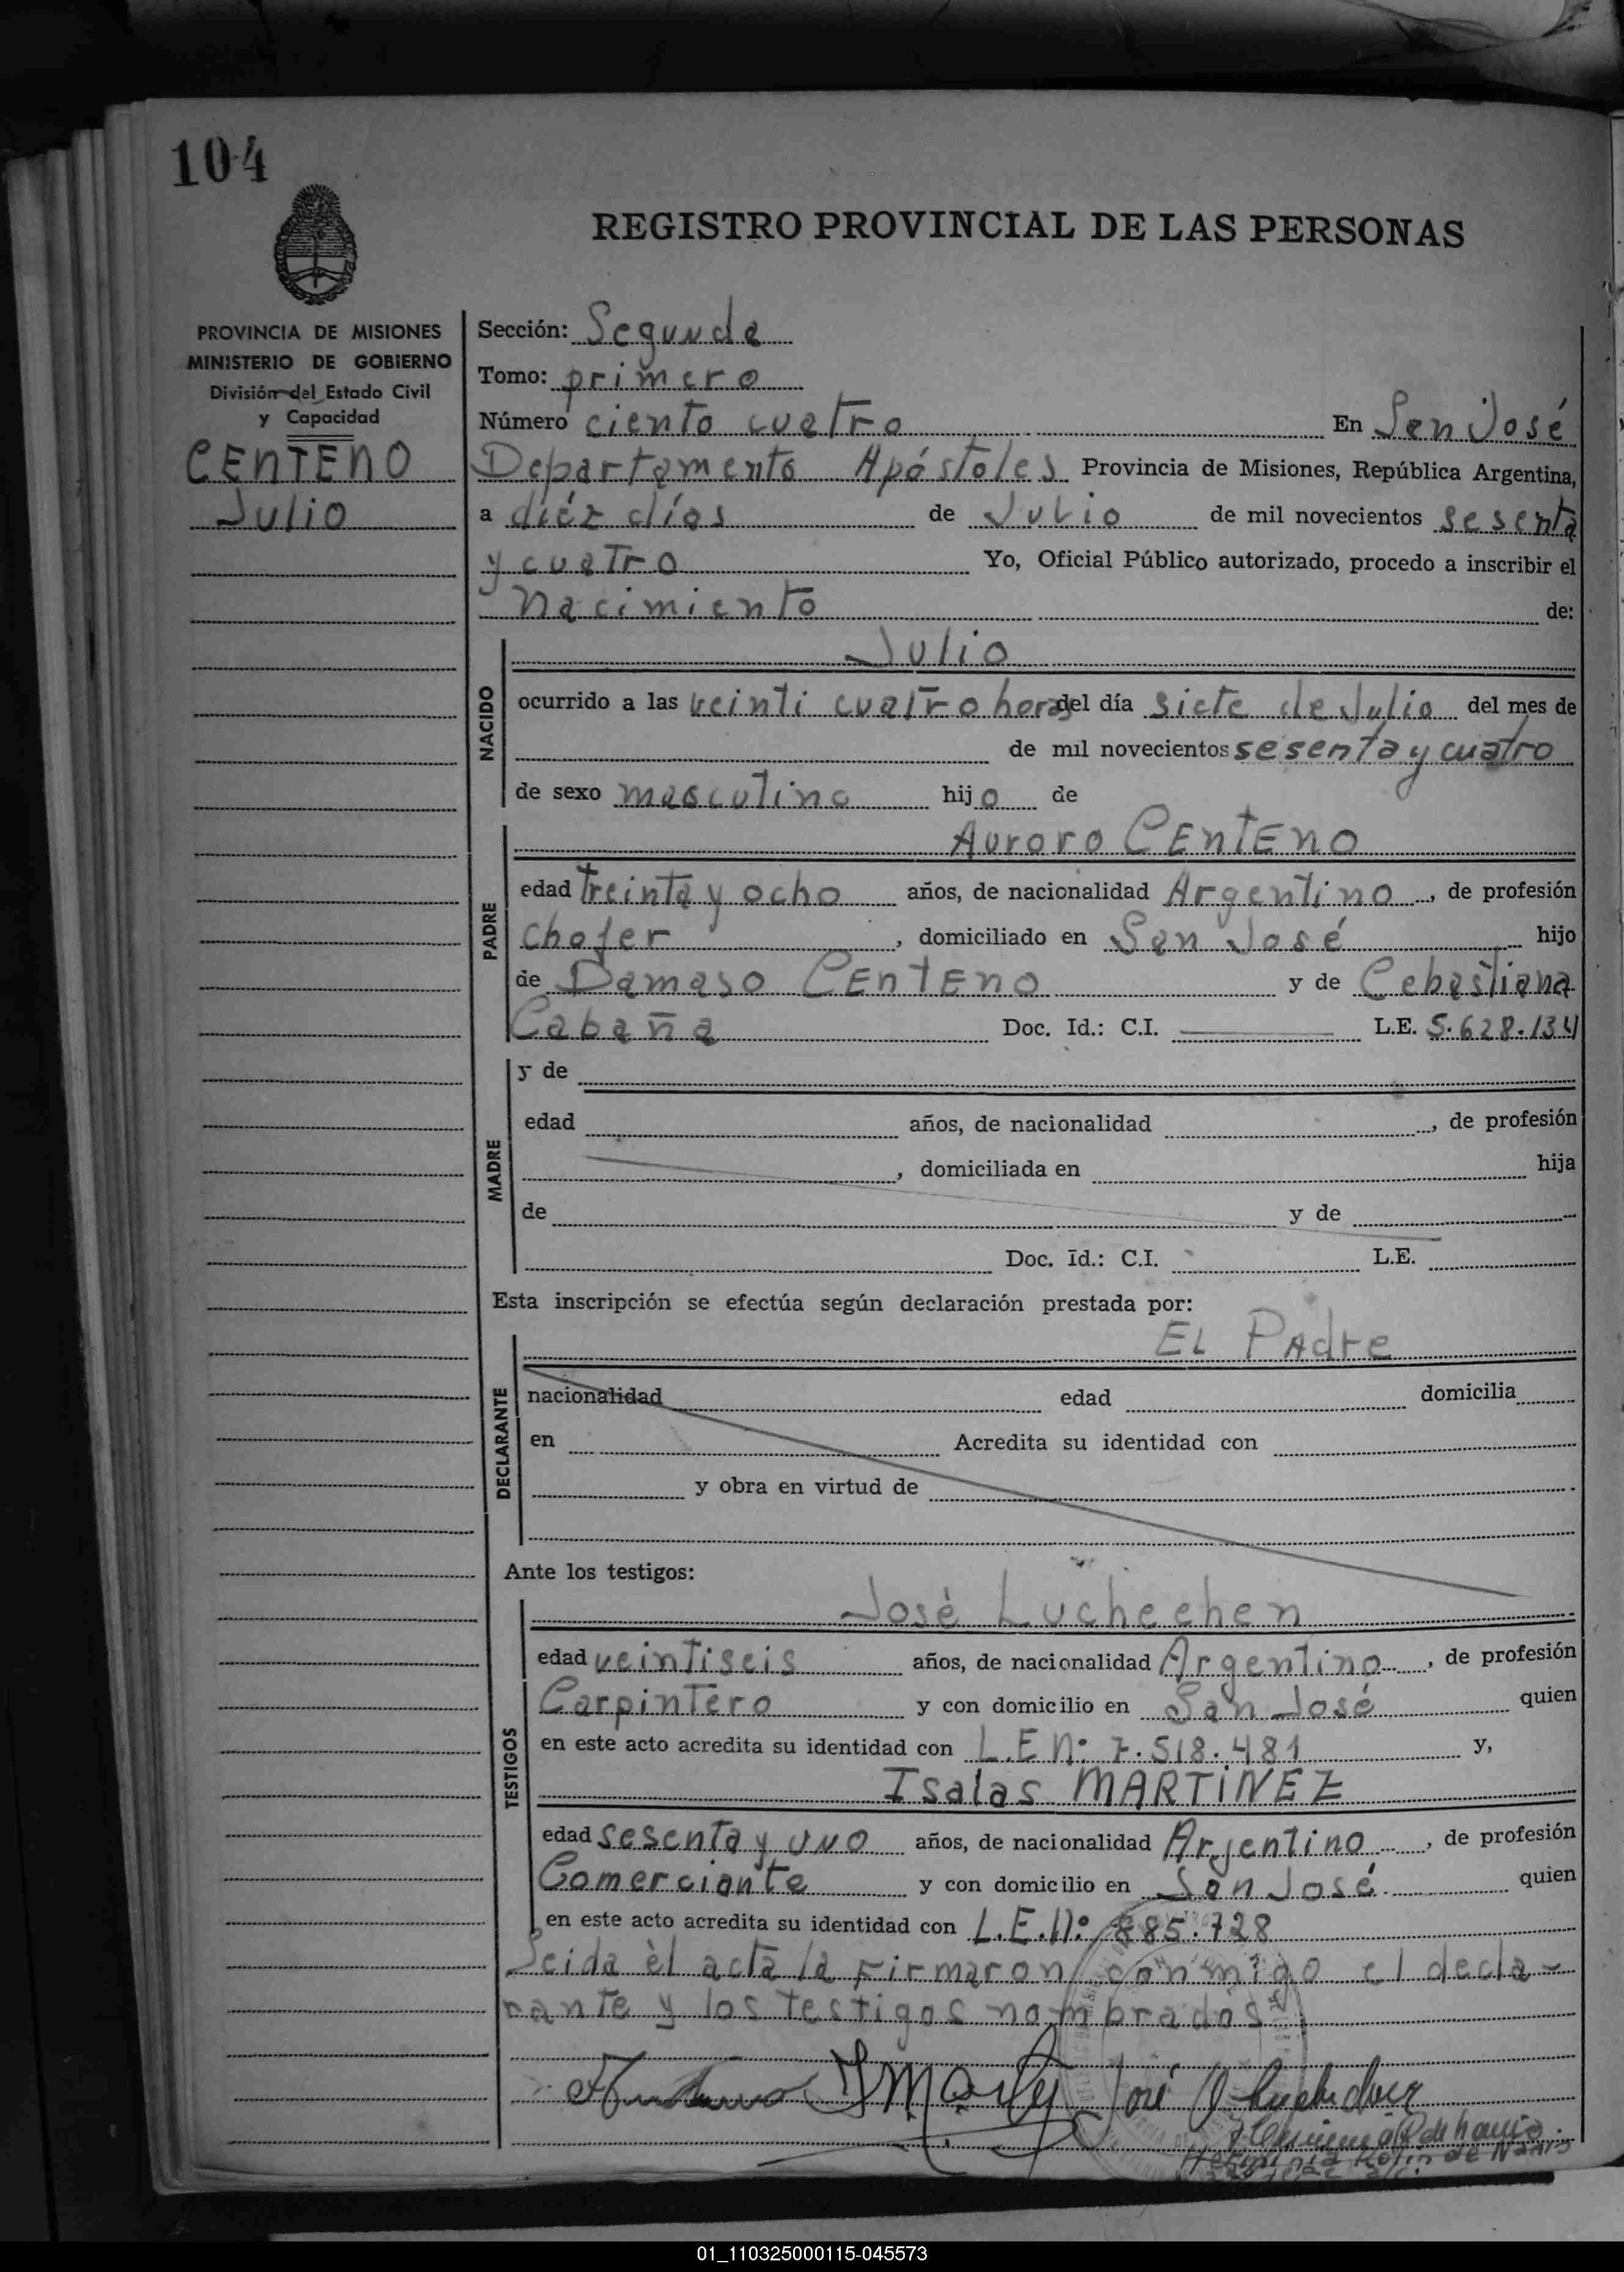 104
REGISTRO PROVINCIAL DE LAS PERSONAS
PROVINCIA DE MISIONES
MINISTERIO DE GOBIERNO
División del Estado Civil
y Capacidad
CENTENO
Julio
Sección: Segunda
Tomo: primero
Número ciento cuatro En San José
Departamento Apóstoles Provincia de Misiones, República Argentina,
a diéz díos de Julio de mil novecientos sesenta
y cuatro Yo, Oficial Público autorizado, procedo a inscribir el
Nacimiento de:
NACIDO
Julio
ocurrido a las veinti cuatro horas del día siete de Julio del mes de
de mil novecientos sesenta y cuatro
de sexo masculino hijo de
PADRE
Auroro CENTENO
edad treinta y ocho años, de nacionalidad Argentino, de profesión
chofer, domiciliado en San José hijo
de Damaso CENTENO y de Cebastiana
Cabaña Doc. Id.: C.I. L.E. 5.628.134
MADRE
y de
edad años, de nacionalidad , de profesión
, domiciliada en hija
de y de
Doc. Id.: C.I. L.E.
Esta inscripción se efectúa según declaración prestada por:
DECLARANTE
EL PAdre
nacionalidad edad domicilia
en Acredita su identidad con
y obra en virtud de
Ante los testigos:
TESTIGOS
José Luchechen
edad veintiseis años, de nacionalidad Argentino, de profesión
Carpintero y con domicilio en San José quien
en este acto acredita su identidad con L.E Nº 7.518.481 y,
Isaias MARTINEZ
edad sesenta y uno años, de nacionalidad Argentino, de profesión
Comerciante y con domicilio en San José quien
en este acto acredita su identidad con L.E.Nº 885.728
Leida èl acta la Firmaron conmigo el decla-
rante y los testigos nombrados
José
01_110325000115-045573